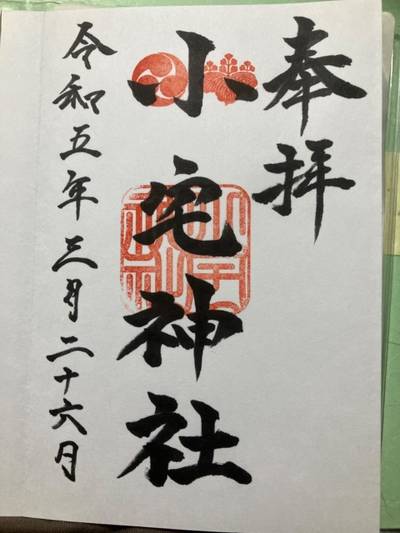 奉拝
小宅神社
令和五年三月二十六日